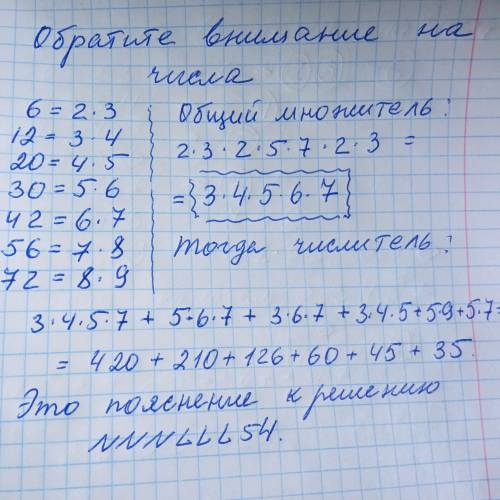 Обратите внимание на
числа
6 = 2·3
12 = 3·4
20 = 4·5
30 = 5·6
42 = 6·7
56 = 7·8
72 = 8·9
Общий множитель:
2·3·2·5·7·2·3 =
= {3·4·5·6·7}
Тогда числитель:
3·4·5·7 + 5·6·7 + 3·6·7 + 3·4·5+5·9+5·7=
= 420 + 210 + 126 + 60 + 45 + 35.
Это пояснение к решению
NNNLLL54.